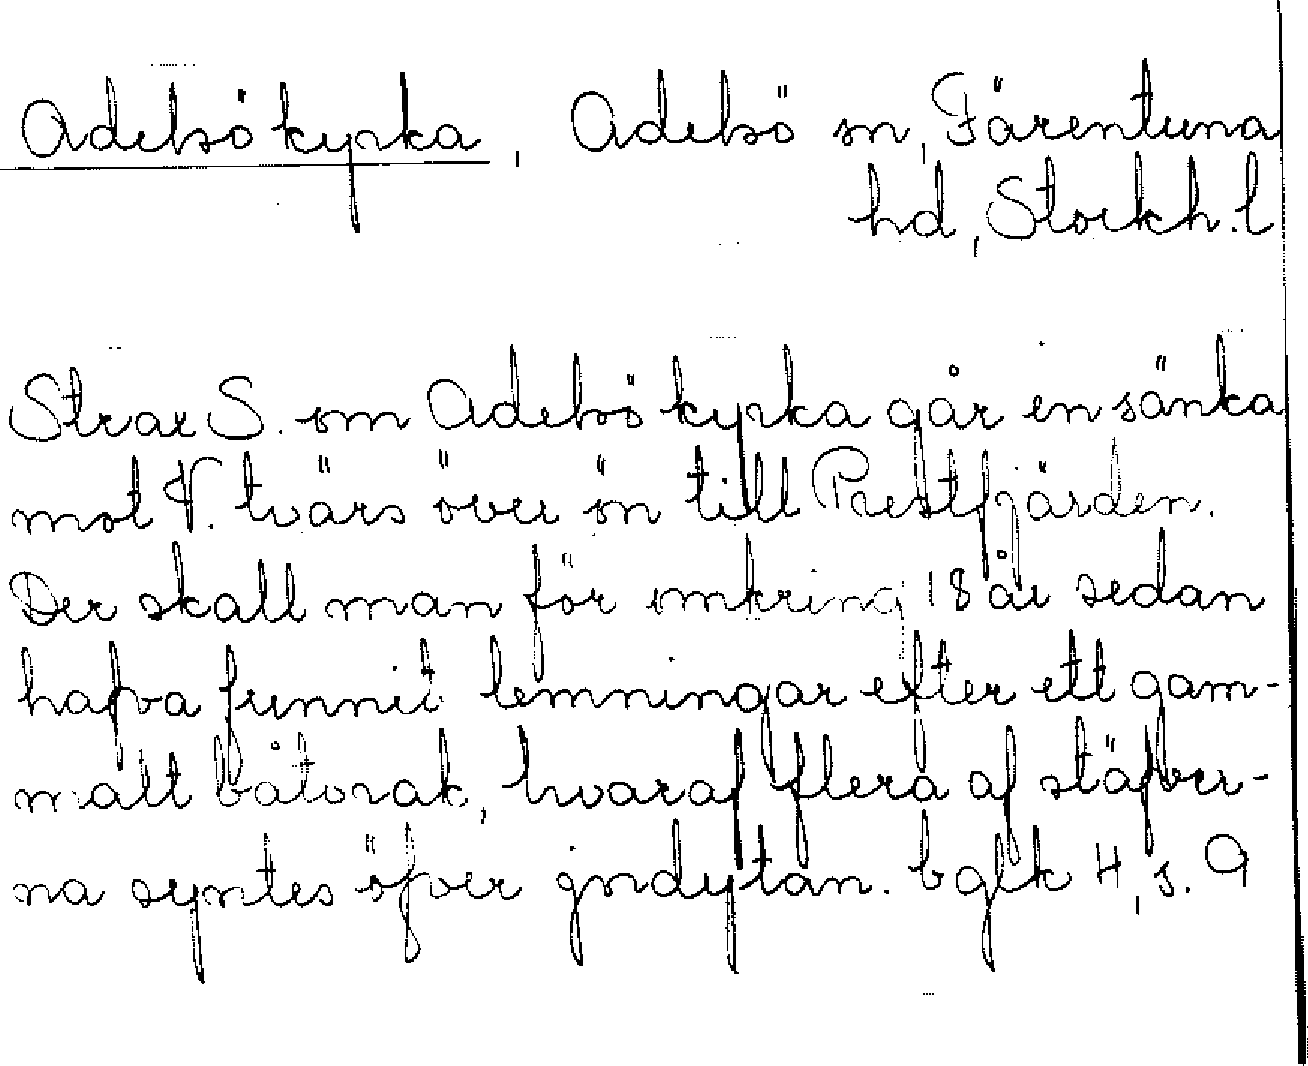 Adelsö kyrka, Adelsö sn, Färentuna
hd, Stockh. l
Strax S. om Adelsö kyrka går en sänka
mot V. tvärs över ön till Prestfjärden.
Der skall man för omkring 18 år sedan
hafva funnit lemningar efter ett gam-
malt båtvrak, hvaraf flera af stäfver-
na syntes öfver jordytan. bglk 4, s. 9